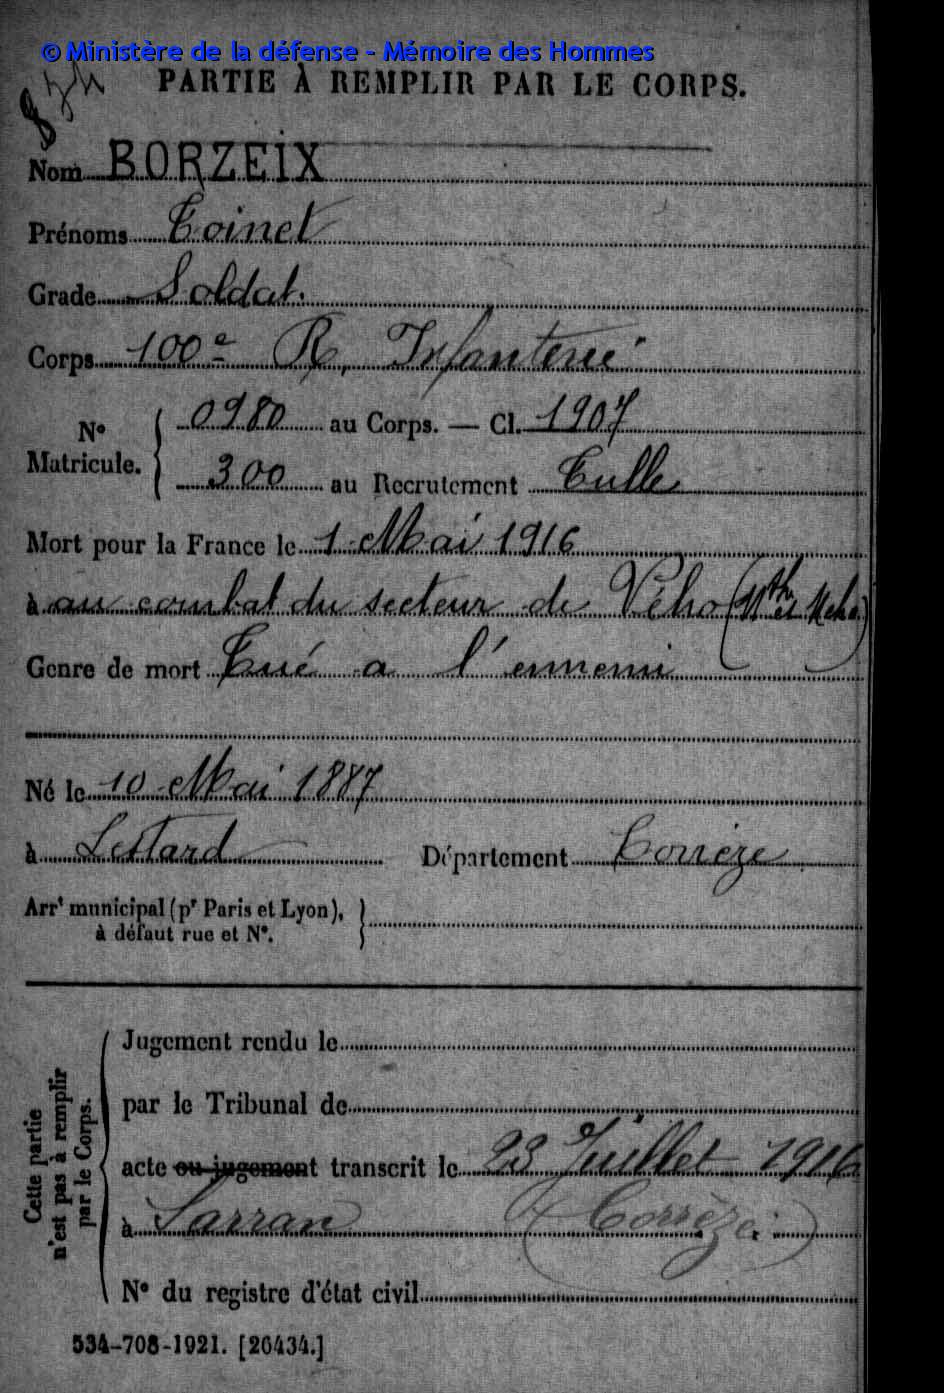 © Ministère de la défense - Mémoire des Hommes
PARTIE À REMPLIR PAR LE CORPS.
Nom BORZEIX
Prénoms Toinet
Grade Soldat.
Corps 100e R. Infanterie
N° Matricule. { 0980 au Corps. — Cl. 1907
300 au Recrutement Tulle
Mort pour la France le 1 Mai 1916
à au combat du secteur de Vého (Mthe et Melle)
Genre de mort Tué a l'ennemi
Né le 10 Mai 1887
à Lestard Département Corrèze
Arrt municipal (pr Paris et Lyon),
à défaut rue et N°.
Cette partie n'est pas à remplir par le Corps.
Jugement rendu le
par le Tribunal de
acte ou jugement transcrit le 23 Juillet 1916
à Sarran (Corrèze)
N° du registre d'état civil
534-708-1921. [26434.]